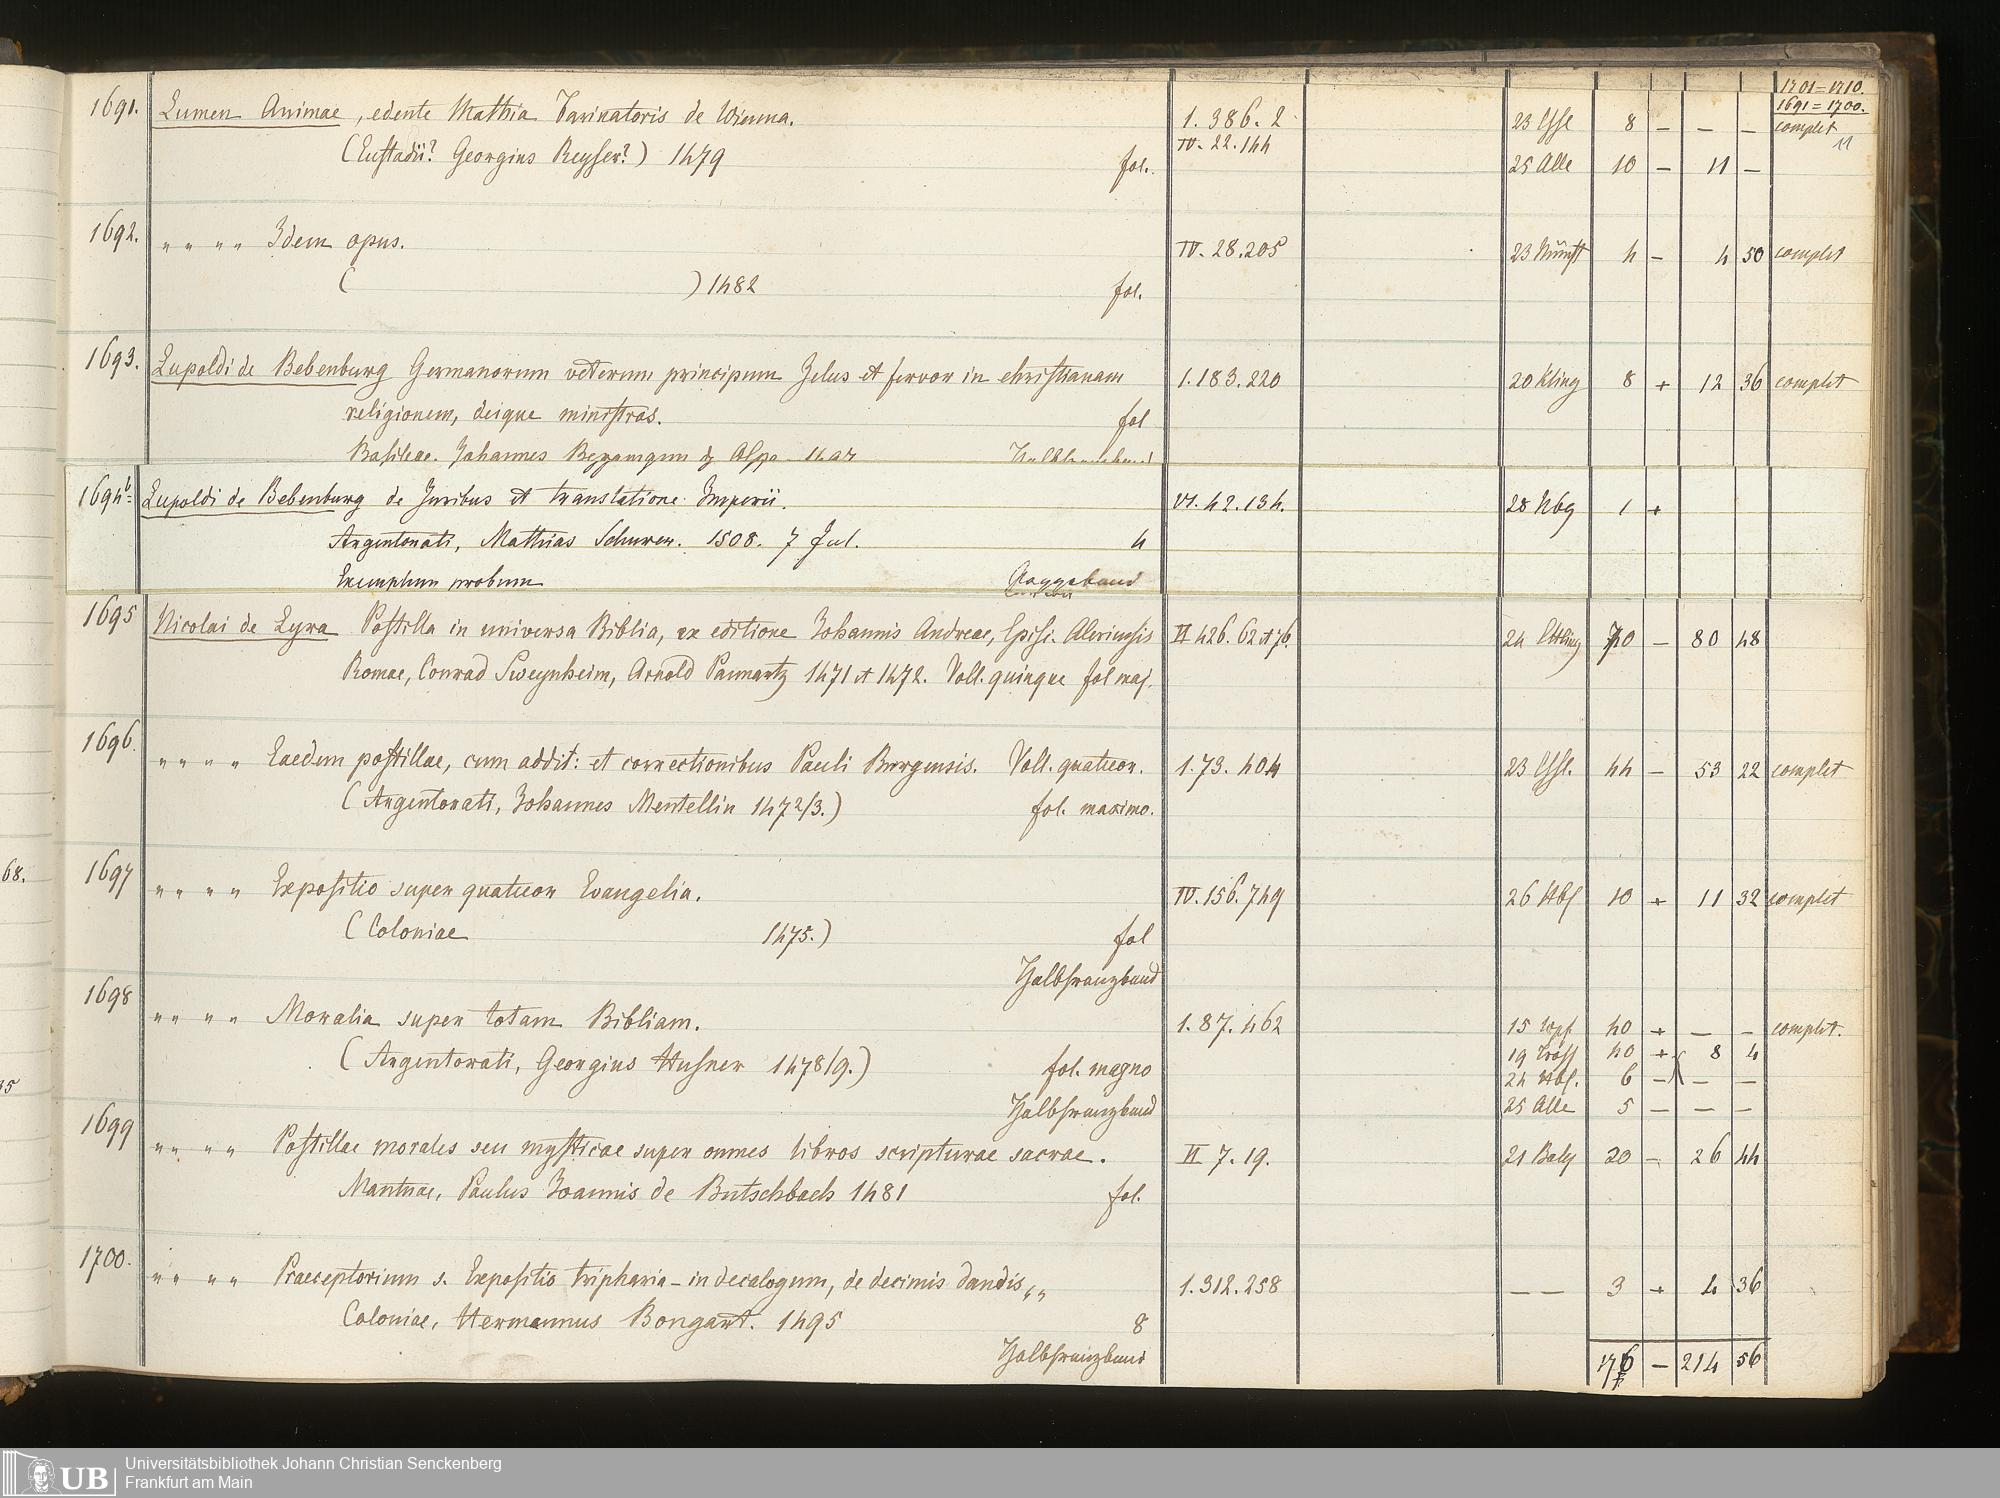 1701=1710.
1691=1700.
1691. Lumen Animae, edente Mathia Farinatoris de Wienna. 1.386.2 23 Essl 8 — — — complet
IV. 22.144 11
(Eustadii? Georgius Reyser?) 1479 fol. 25 Alle 10 — 11 —
1692. " " " " Idem opus. IV. 28.205 4 — 4 50 complet
( ) 1482 fol.
1693. Lupoldi de Bebenburg Germanorum veterum principum Zelus et fervor in christianam 1.183.220 20 Kling 8 + 12 36 complet
religionem, deique ministros. fol
Basileae. Johannes de Olpe
1694b= Lupoldi de Bebenburg de Juribus et translatione Imperii. VI. 42.134. 28 Nbg 1 +
Argentorati, Mathias Schurer. 1508. 7 Jul. 4
Exemplum probum Pappband
1695 Nicolai de Lyra Postilla in universa Biblia, ex editione Johannis Andreae, Episc. Aleriensis II 426. 62 et 76. 24 Ettling 70 — 80 48
Romae, Conrad Sweynheim, Arnold Pannartz 1471 et 1472. Voll. quinque fol maj.
1696. " " " " Eaedem postillae, cum addit: et correctionibus Pauli Burgensis. Voll. quatuor. 1.73.404 23 Essl. 44 — 53 22 complet
(Argentorati, Johannes Mentellin 1472/3.) fol. maximo.
68.
1697 " " " " Expositio super quatuor Evangelia. IV. 156.749 26 10 + 11 32 complet
(Coloniae 1475.) fol
Halbfranzband
1698 " " " " Moralia super totam Bibliam. 1.87.462 15 40 + — — complet.
(Argentorati, Georgius Husner 1478/9.) fol. magno 19 40 + 8 4
24 6 — — —
Halbfranzband 25 Alle 5 — — —
1699 " " " " Postillae morales seu mysticae super omnes libros scripturae sacrae. II 7.19. 21 20 — 26 44
Mantuae, Paulus Joannis de Butschbach 1481 fol.
1700. " " " " Praeceptorium s. Expositio tripharia – in decalogum, de decimis dandis „ 1.312.258 — — 3 + 4 36
Coloniae, Hermannus Bongart. 1495 8
Halbfranzband 176 — 214 56
UB
Universitätsbibliothek Johann Christian Senckenberg
Frankfurt am Main